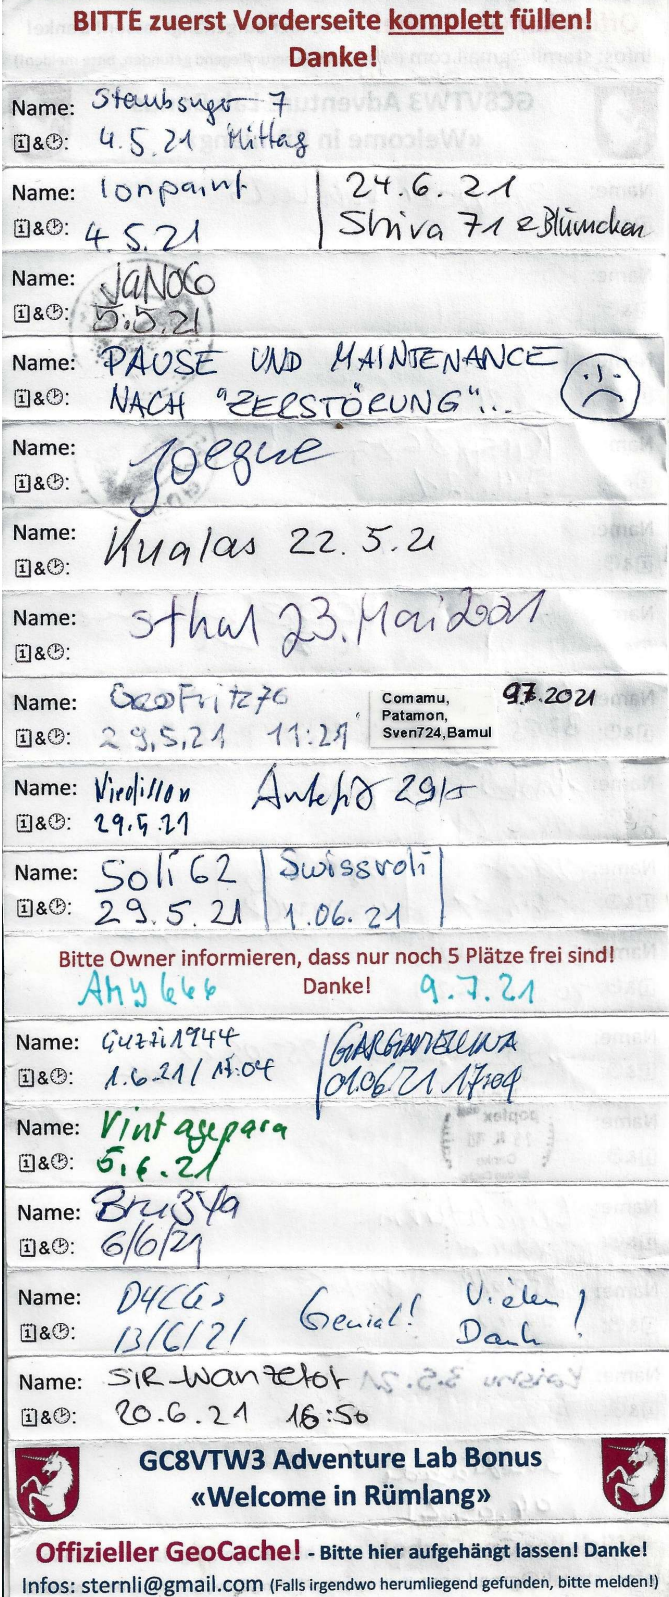 BITTE zuerst Vorderseite komplett füllen!
Danke!
Name: Staubsuger 7
&: 4.5.21 Mittag
Name: Ionpaint | 24.6.21
&: 4.5.21 | Shiva 71 & Blümchen
Name: JaNoCo
&: 5.5.21
Name: PAUSE UND MAINTENANCE
&: NACH "ZERSTÖRUNG"...
Name: Joegue
&:
Name: Kualas 22.5.21
&:
Name: sthal 23. Mai 2021
&:
Name: GeoFritz76 Comamu, 9.7.2021
Patamon,
&: 29.5.21 11:29 Sven724,Bamul
Name: 29/5
&: 29.5.21
Name: Soli 62 | Swissroli |
&: 29.5.21 | 1.06.21
Bitte Owner informieren, dass nur noch 5 Plätze frei sind!
Amy666 Danke! 9.7.21
Name: Guzzi1944
&: 1.6.21/ 17:04 | 01.06.21 17:04
Name: Vintagepara
&: 5.6.21
Name:
&: 6/6/21
Name: Genial! Vielen
&: 13/6/21 Dank!
Name: SiR_Wanzelot
&: 20.6.21 16:50
GC8VTW3 Adventure Lab Bonus
«Welcome in Rümlang»
Offizieller GeoCache! - Bitte hier aufgehängt lassen! Danke!
Infos: sternli@gmail.com (Falls irgendwo herumliegend gefunden, bitte melden!)